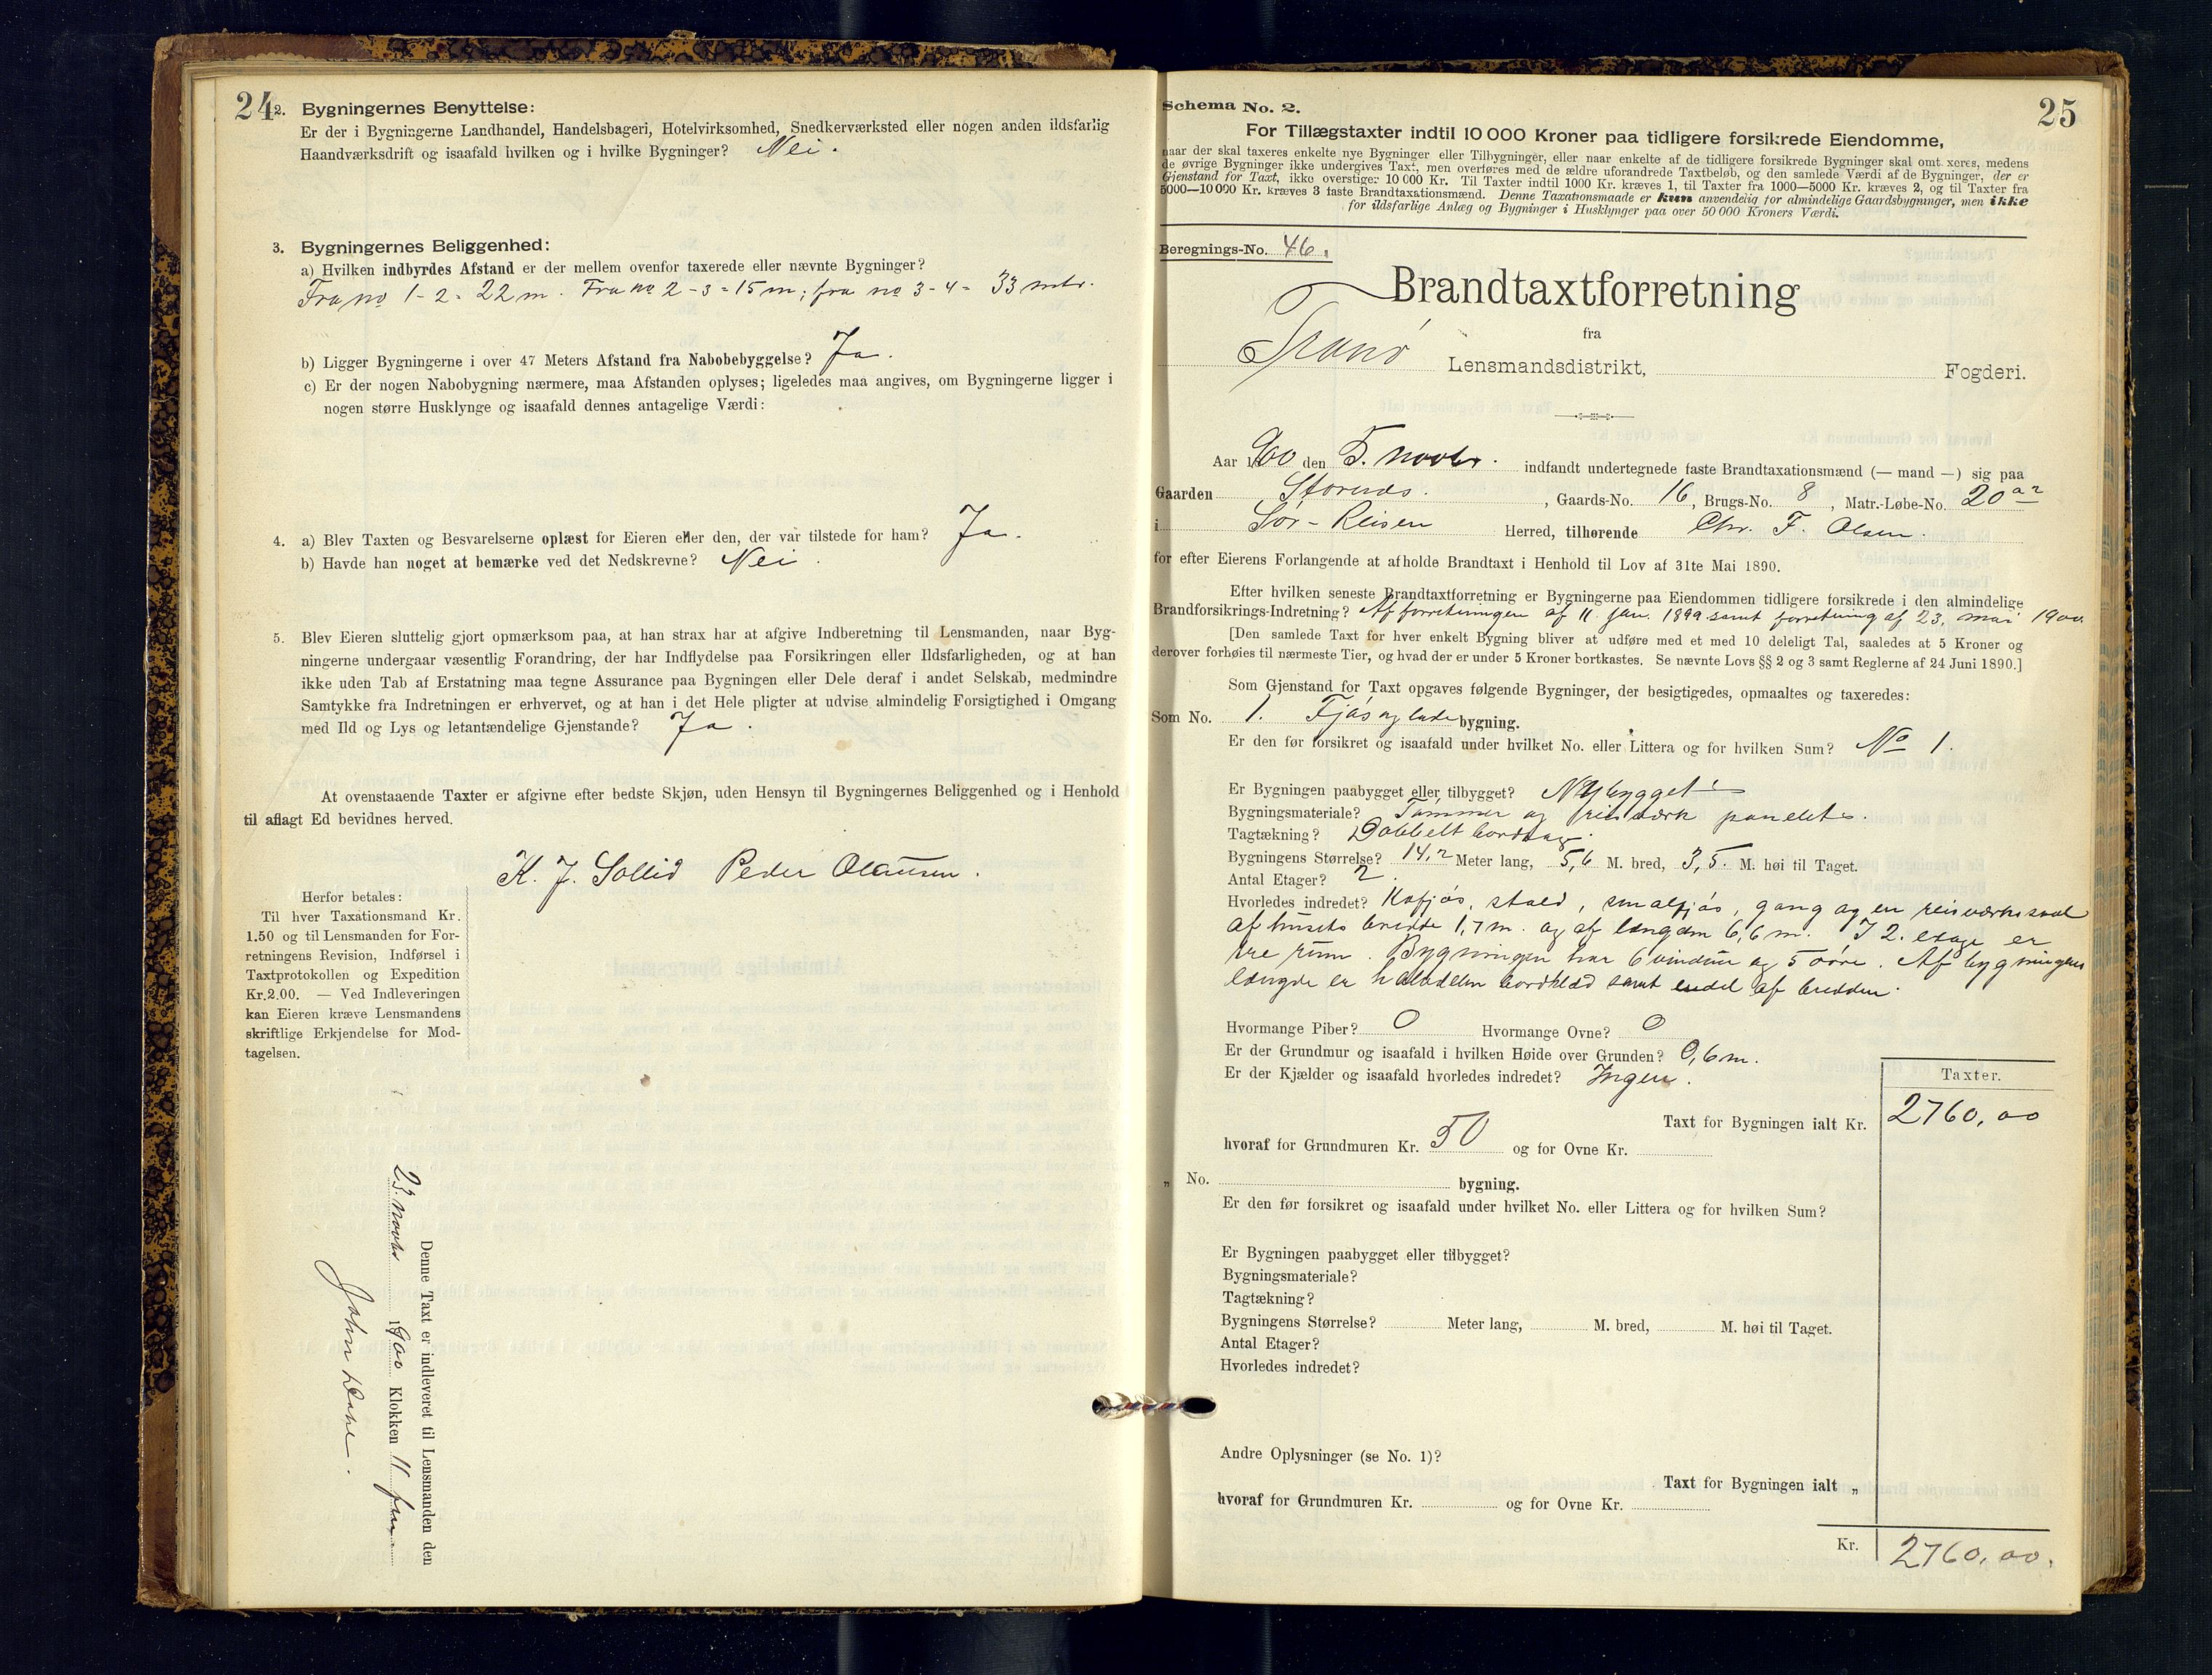 24
2. Bygningernes Benyttelse:
Er der i Bygningerne Landhandel, Handelsbageri, Hotelvirksomhed, Snedkerværksted eller nogen anden ildsfarlig
Haandværksdrift og isaafald hvilken og i hvilke Bygninger? Nei.
3. Bygningernes Beliggenhed:
a) Hvilken indbyrdes Afstand er der mellem ovenfor taxerede eller nævnte Bygninger?
Fra no 1-2 = 22 m. Fra no 2-3 = 15 m; fra no 3-4 = 33 mtr.
b) Ligger Bygningerne i over 47 Meters Afstand fra Nabobebyggelse? Ja.
c) Er der nogen Nabobygning nærmere, maa Afstanden oplyses; ligeledes maa angives, om Bygningerne ligger i
nogen større Husklynge og isaafald dennes antagelige Værdi:
4. a) Blev Taxten og Besvarelserne oplæst for Eieren eller den, der var tilstede for ham? Ja.
b) Havde han noget at bemærke ved det Nedskrevne? Nei.
5. Blev Eieren sluttelig gjort opmærksom paa, at han strax har at afgive Indberetning til Lensmanden, naar Byg-
ningerne undergaar væsentlig Forandring, der har Indflydelse paa Forsikringen eller Ildsfarligheden, og at han
ikke uden Tab af Erstatning maa tegne Assurance paa Bygningen eller Dele deraf i andet Selskab, medmindre
Samtykke fra Indretningen er erhvervet, og at han i det Hele pligter at udvise almindelig Forsigtighed i Omgang
med Ild og Lys og letantændelige Gjenstande? Ja.
At ovenstaaende Taxter er afgivne efter bedste Skjøn, uden Hensyn til Bygningernes Beliggenhed og i Henhold
til aflagt Ed bevidnes herved.
K. J. Sollid Peder Olaussen.
Herfor betales:
Til hver Taxationsmand Kr.
1.50 og til Lensmanden for For-
retningens Revision, Indførsel i
Taxtprotokollen og Expedition
Kr. 2.00. — Ved Indleveringen
kan Eieren kræve Lensmandens
skriftlige Erkjendelse for Mod-
tagelsen.
Denne Taxt er indleveret til Lensmanden den
23. novbr 1900 Klokken 11 fm
John
25
Schema No. 2.
For Tillægstaxter indtil 10 000 Kroner paa tidligere forsikrede Eiendomme,
naar der skal taxeres enkelte nye Bygninger eller Tilbygninger, eller naar enkelte af de tidligere forsikrede Bygninger skal omtaxeres, medens
de øvrige Bygninger ikke undergives Taxt, men overføres med de ældre uforandrede Taxtbeløb, og den samlede Værdi af de Bygninger, der er
Gjenstand for Taxt, ikke overstiger 10 000 Kr. Til Taxter indtil 1000 Kr. kræves 1, til Taxter fra 1000—5000 Kr. kræves 2, og til Taxter fra
5000—10 000 Kr. kræves 3 faste Brandtaxationsmænd. Denne Taxationsmaade er kun anvendelig for almindelige Gaardsbygninger, men ikke
for ildsfarlige Anlæg og Bygninger i Husklynger paa over 50 000 Kroners Værdi.
Beregnings-No. 46.
Brandtaxtforretning
fra
Tranø Lensmandsdistrikt, Fogderi.
Aar 1900 den 5. novbr. indfandt undertegnede faste Brandtaxationsmænd (— mand —) sig paa
Gaarden Stornes., Gaards-No. 16, Brugs-No. 8, Matr.-Løbe-No. 20 a 2
i Sør-Reisen Herred, tilhørende Chr. F. Olsen.
for efter Eierens Forlangende at afholde Brandtaxt i Henhold til Lov af 31te Mai 1890.
Efter hvilken seneste Brandtaxtforretning er Bygningerne paa Eiendommen tidligere forsikrede i den almindelige
Brandforsikrings-Indretning? Af forretningen af 11. jan. 1899 samt forretning af 23. mai 1900.
[Den samlede Taxt for hver enkelt Bygning bliver at udføre med et med 10 deleligt Tal, saaledes at 5 Kroner og
derover forhøies til nærmeste Tier, og hvad der er under 5 Kroner bortkastes. Se nævnte Lovs §§ 2 og 3 samt Reglerne af 24 Juni 1890.]
Som Gjenstand for Taxt opgaves følgende Bygninger, der besigtigedes, opmaaltes og taxeredes:
Som No. 1. Fjøs og lade bygning.
Er den før forsikret og isaafald under hvilket No. eller Littera og for hvilken Sum? No 1.
Er Bygningen paabygget eller tilbygget? Nybygget
Bygningsmateriale? Tømmer og reisværk panelet.
Tagtækning? Dobbelt bordtag.
Bygningens Størrelse? 14,2 Meter lang, 5,6 M. bred, 3,5. M. høi til Taget.
Antal Etager? 2.
Hvorledes indredet? Kofjøs, stald, smalfjøs, gang og en reisværkssval
af husets bredde 1,7 m. og af længden 6,6 m. I 2. etage er
tre rum. Bygningen har 6 vinduer og 5 døre. Af bygningens
længde er halvdelen bordklæd samt endel af bredden.
Hvormange Piber? 0 Hvormange Ovne? 0
Er der Grundmur og isaafald i hvilken Høide over Grunden? 0,6 m.
Er der Kjælder og isaafald hvorledes indredet? Ingen.
Taxter.
Taxt for Bygningen ialt Kr. 2760,00
hvoraf for Grundmuren Kr. 50 og for Ovne Kr.
„ No. bygning.
Er den før forsikret og isaafald under hvilket No. eller Littera og for hvilken Sum?
Er Bygningen paabygget eller tilbygget?
Bygningsmateriale?
Tagtækning?
Bygningens Størrelse? Meter lang, M. bred, M. høi til Taget.
Antal Etager?
Hvorledes indredet?
Andre Oplysninger (se No. 1)?
Taxt for Bygningen ialt „
hvoraf for Grundmuren Kr. og for Ovne Kr.
Kr. 2760,00.